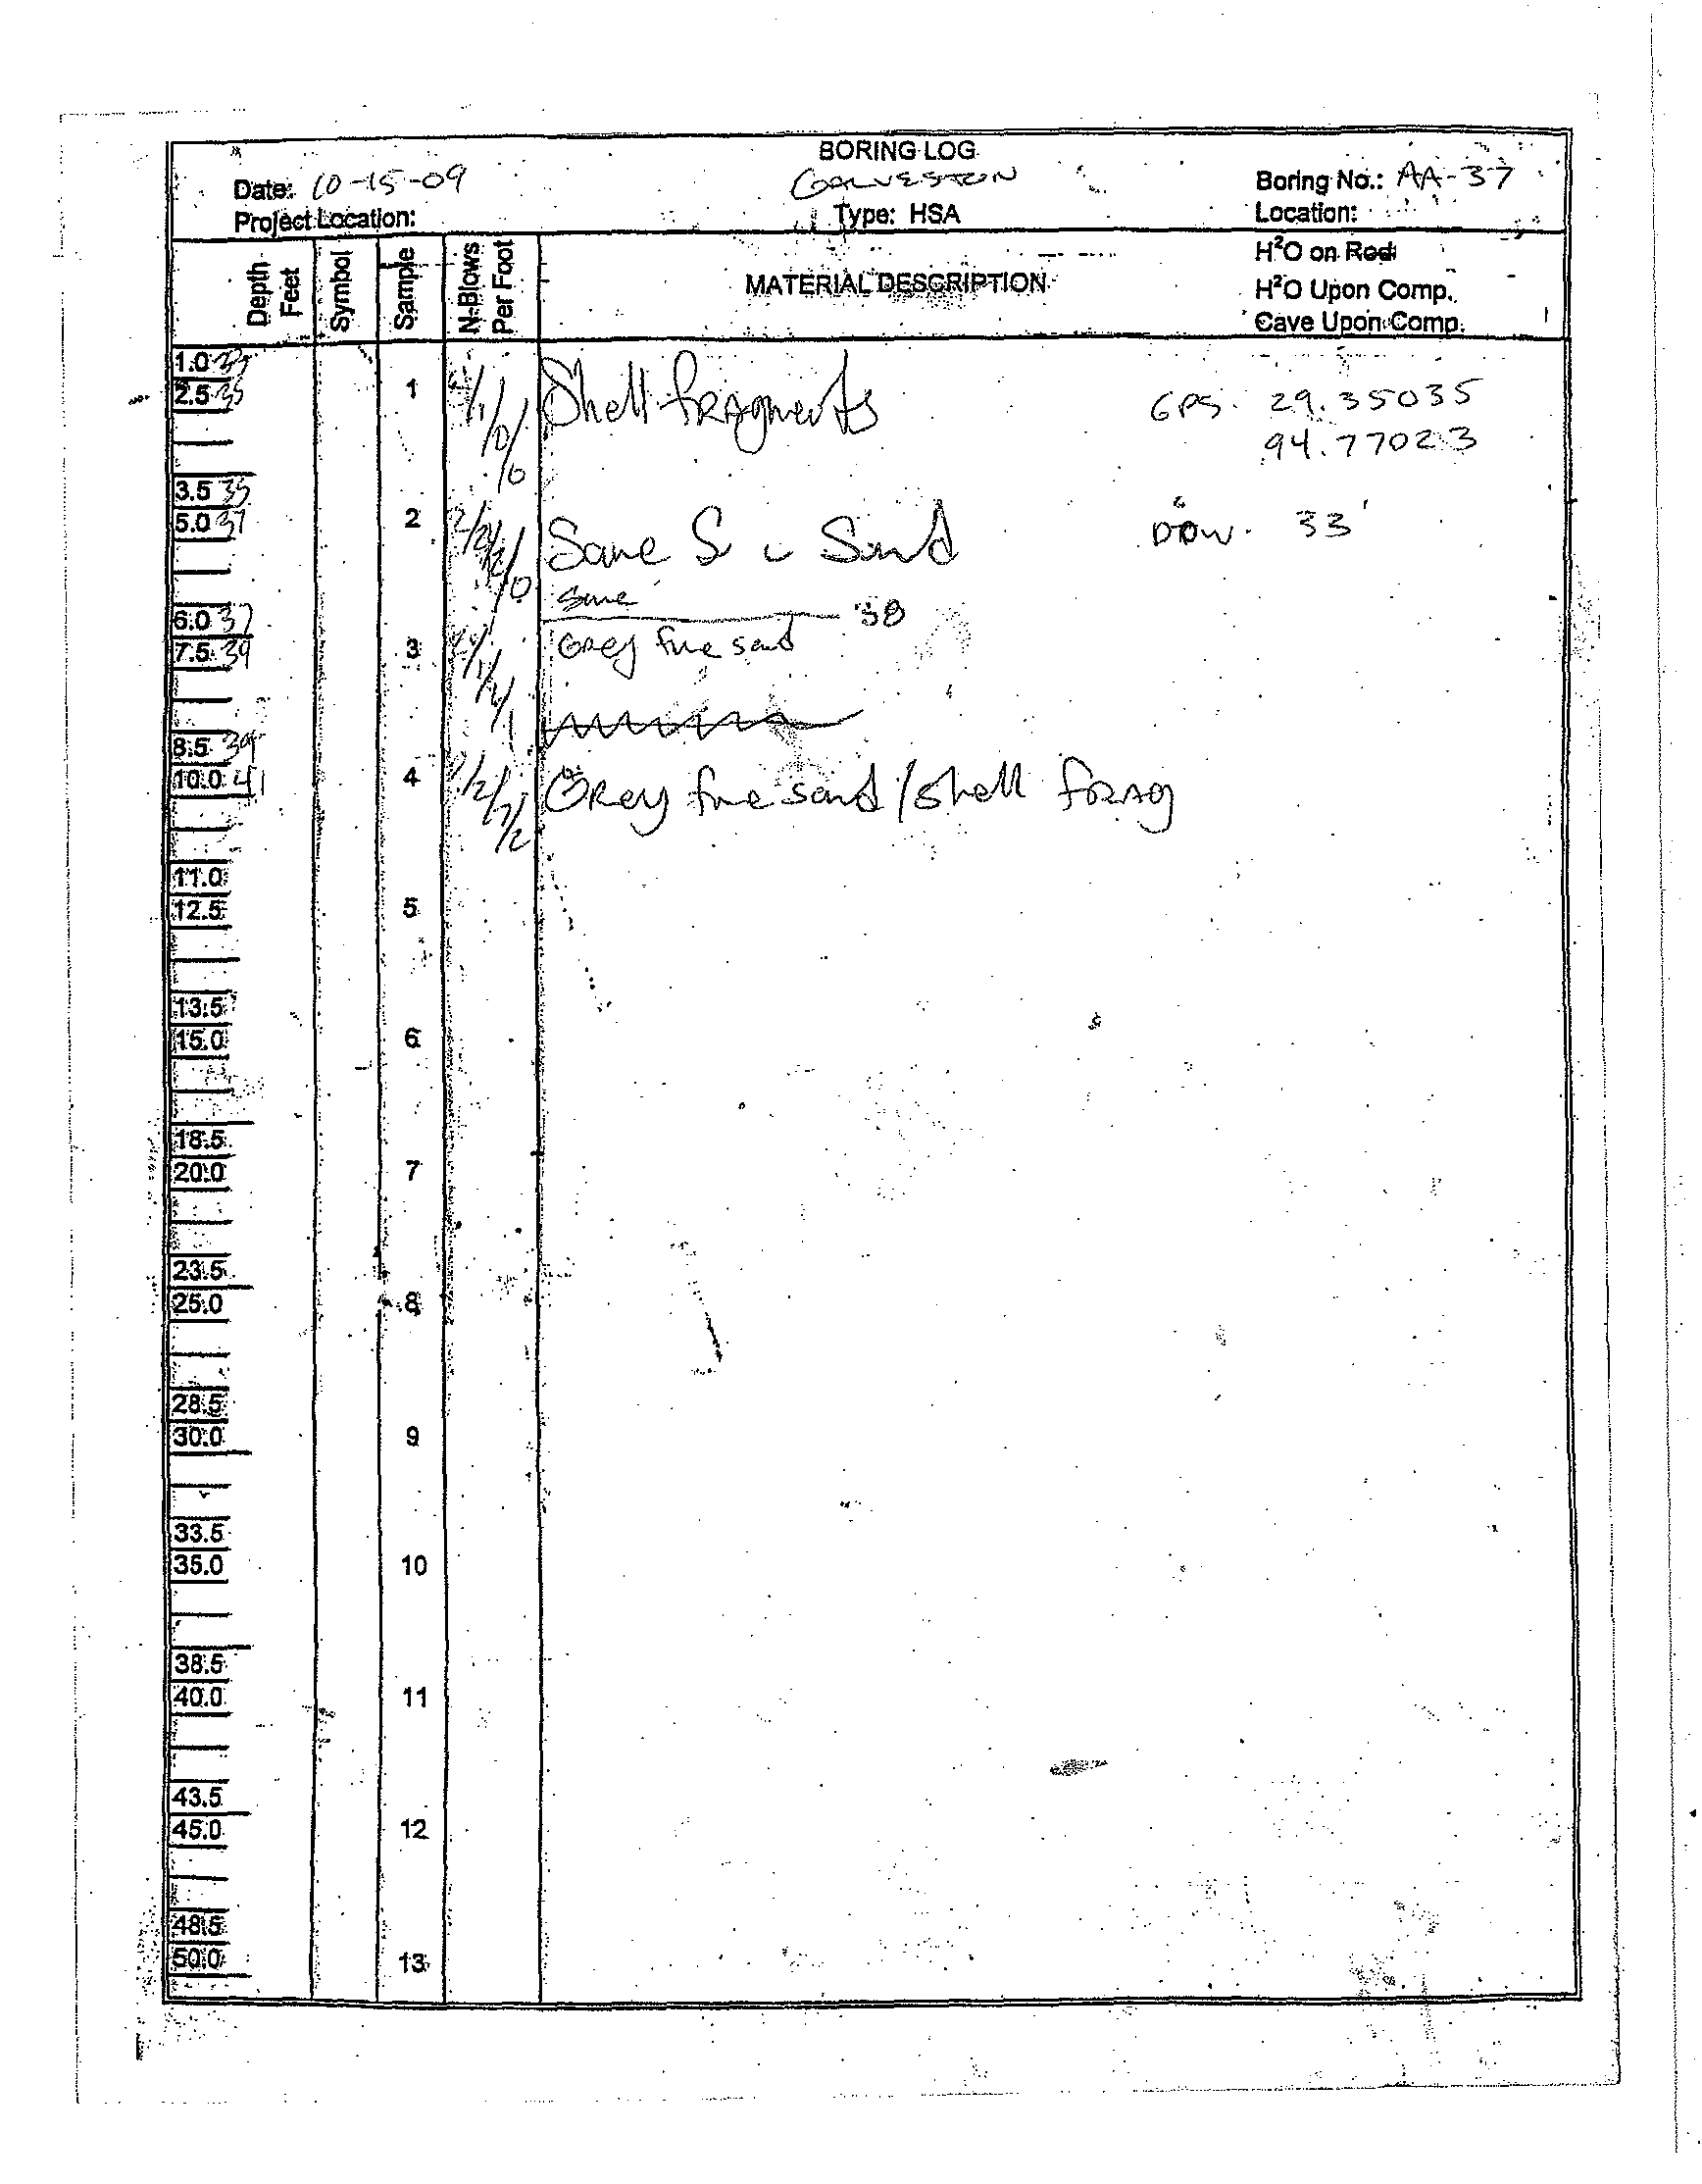 BORING LOG
Date: 10-15-09 GALVESTON Boring No.: AA-37
Project Location: Type: HSA Location:
Depth Feet Symbol Sample N-Blows Per Foot MATERIAL DESCRIPTION H²O on Rod
H²O Upon Comp.
Cave Upon Comp.
1.0
2.5 35 1 Shell fragments GPS. 29.35035
94.77023
3.5 35
5.0 37 2 Same S Sand DOW. 33'
Same
6.0 37 38
7.5 39 3 Grey fine sand
8.5 39
10.0 41 4 Grey fine sand / shell frag
11.0
12.5 5
13.5
15.0 6
18.5
20.0 7
23.5
25.0 8
28.5
30.0 9
33.5
35.0 10
38.5
40.0 11
43.5
45.0 12
48.5
50.0 13